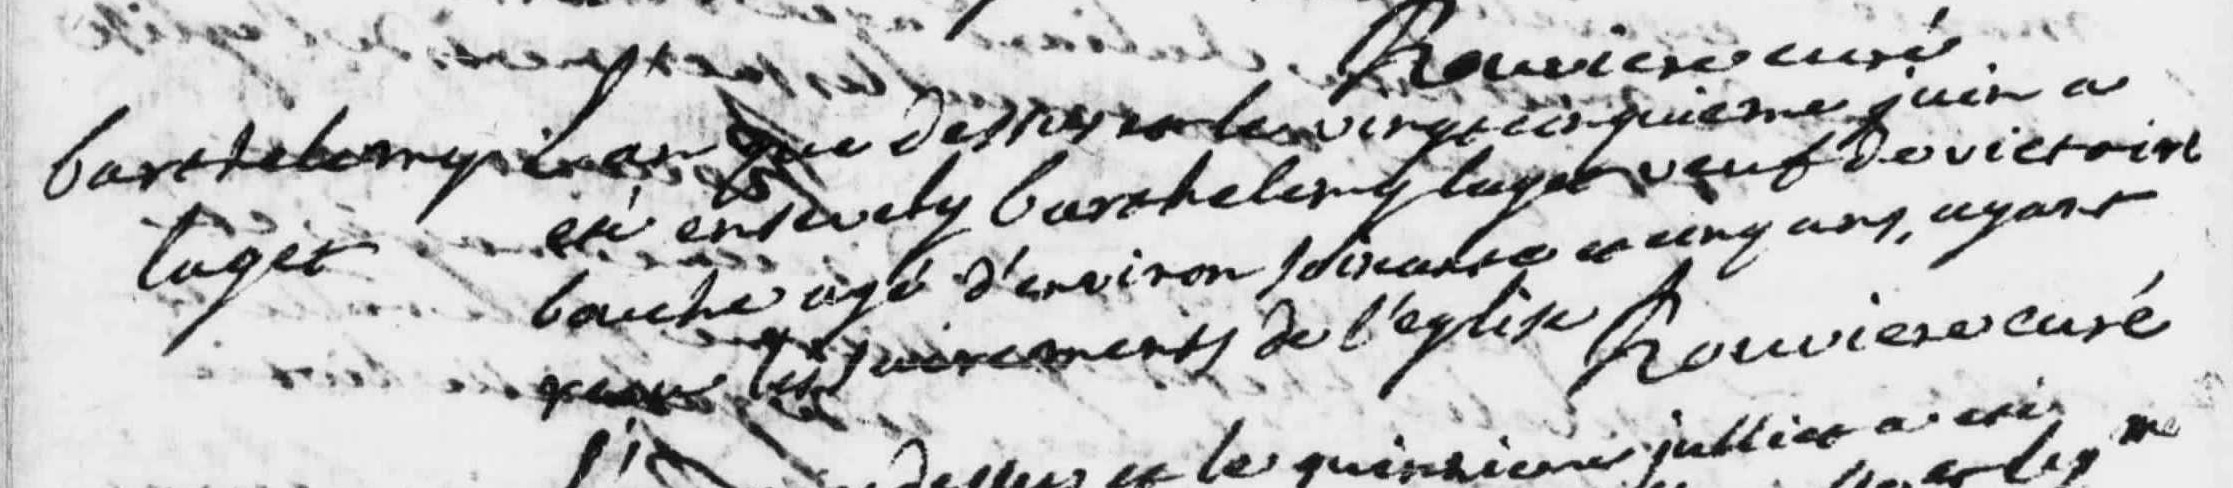 Rouviere curé
barthelemy
luget
l'an que dessus et le vingt cinquieme juin a
eté ensevely barthelemy luget veuf de victoire
bouche agé d'environ soixante et cinq ans, ayant
reçu les sacrements de l'eglise Rouviere curé
dessus et le quinzieme julliet a eté